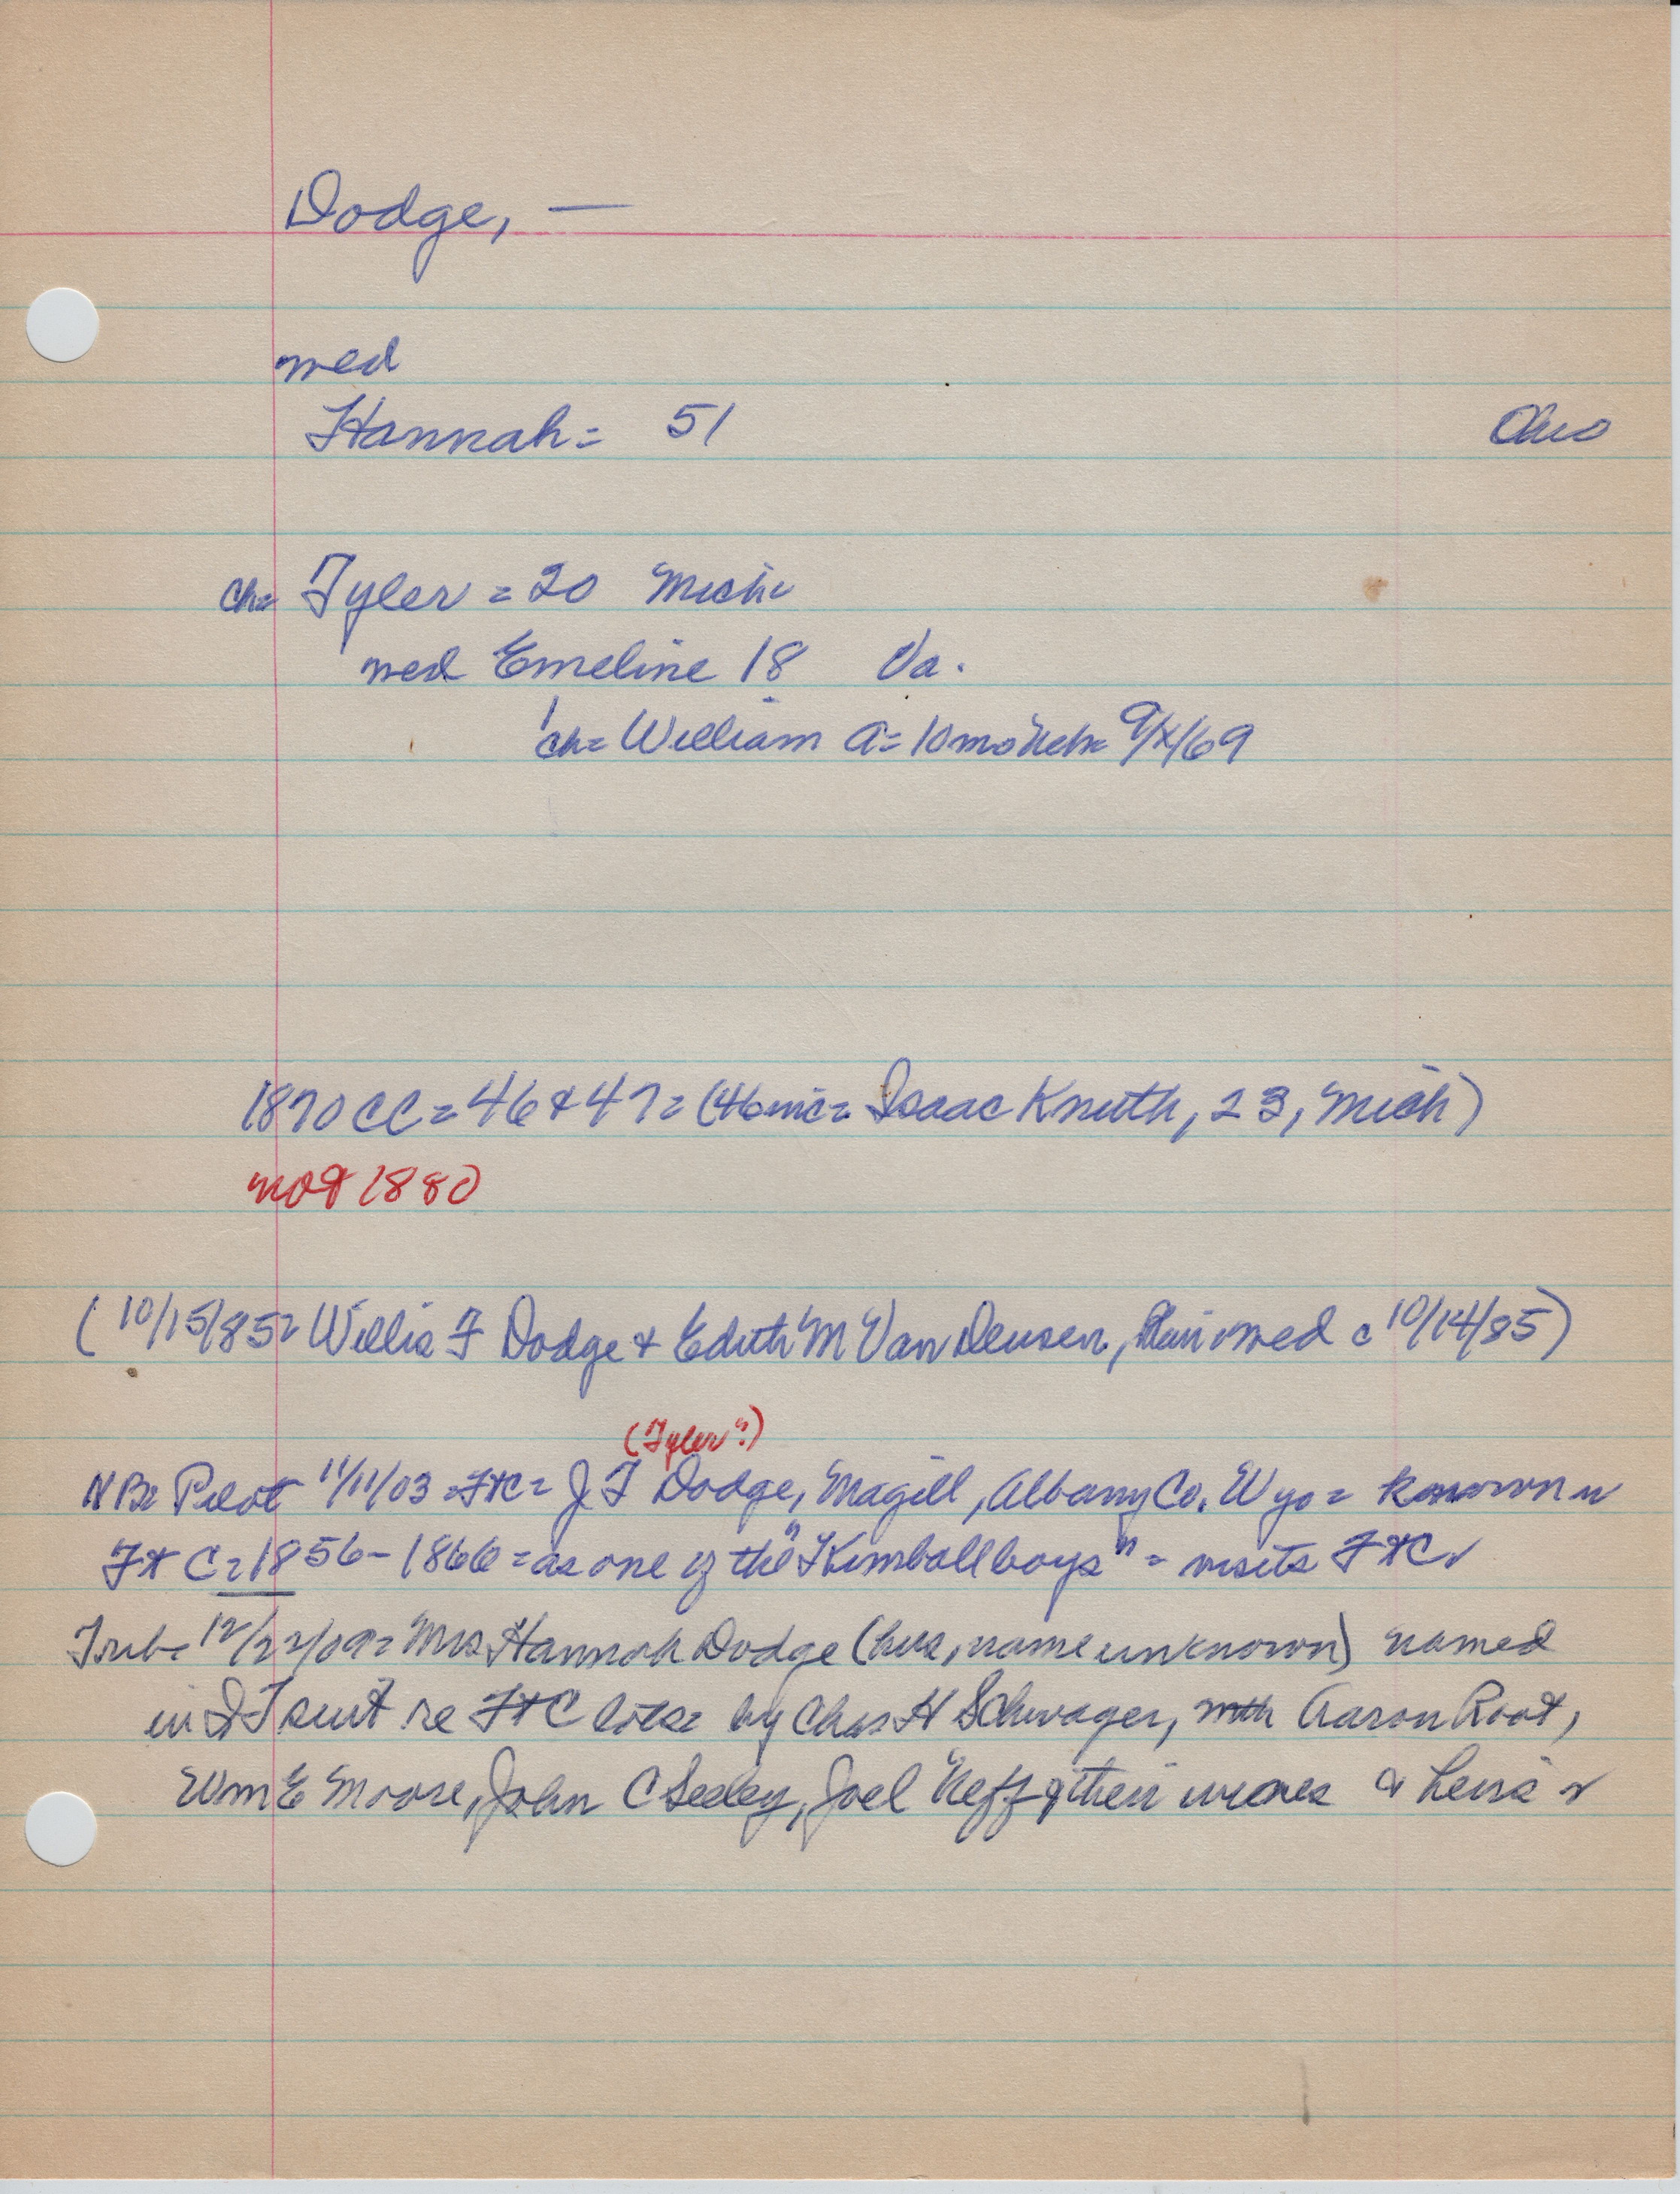 Dodge, —
med
Hannah = 51 Ohio
ch= Tyler = 20 Mich
med Emeline 18 Va.
ch= William A = 10mo Neb= 9/x/69
1870 CC = 46 & 47 = (46 inc = Isaac Knuth, 23, Mich)
not 1880
(10/15/85= Willis F Dodge & Edith M Van Deusen, med c 10/14/85)
(Tyler?)
NB= Pilot 11/11/03 = FtC = J T Dodge, Magill, Albany Co. Wyo = known in
Ft C = 1856-1866 = as one of the "Kimball boys" = visits FtC
Trib= 12/22/09= Mrs Hannah Dodge (hus, name unknown) named
in QT suit re FtC lots= by Chas H Schwager, with Aaron Root,
Wm E Moore, John C Seeley, Joel Neff & their wives & heirs